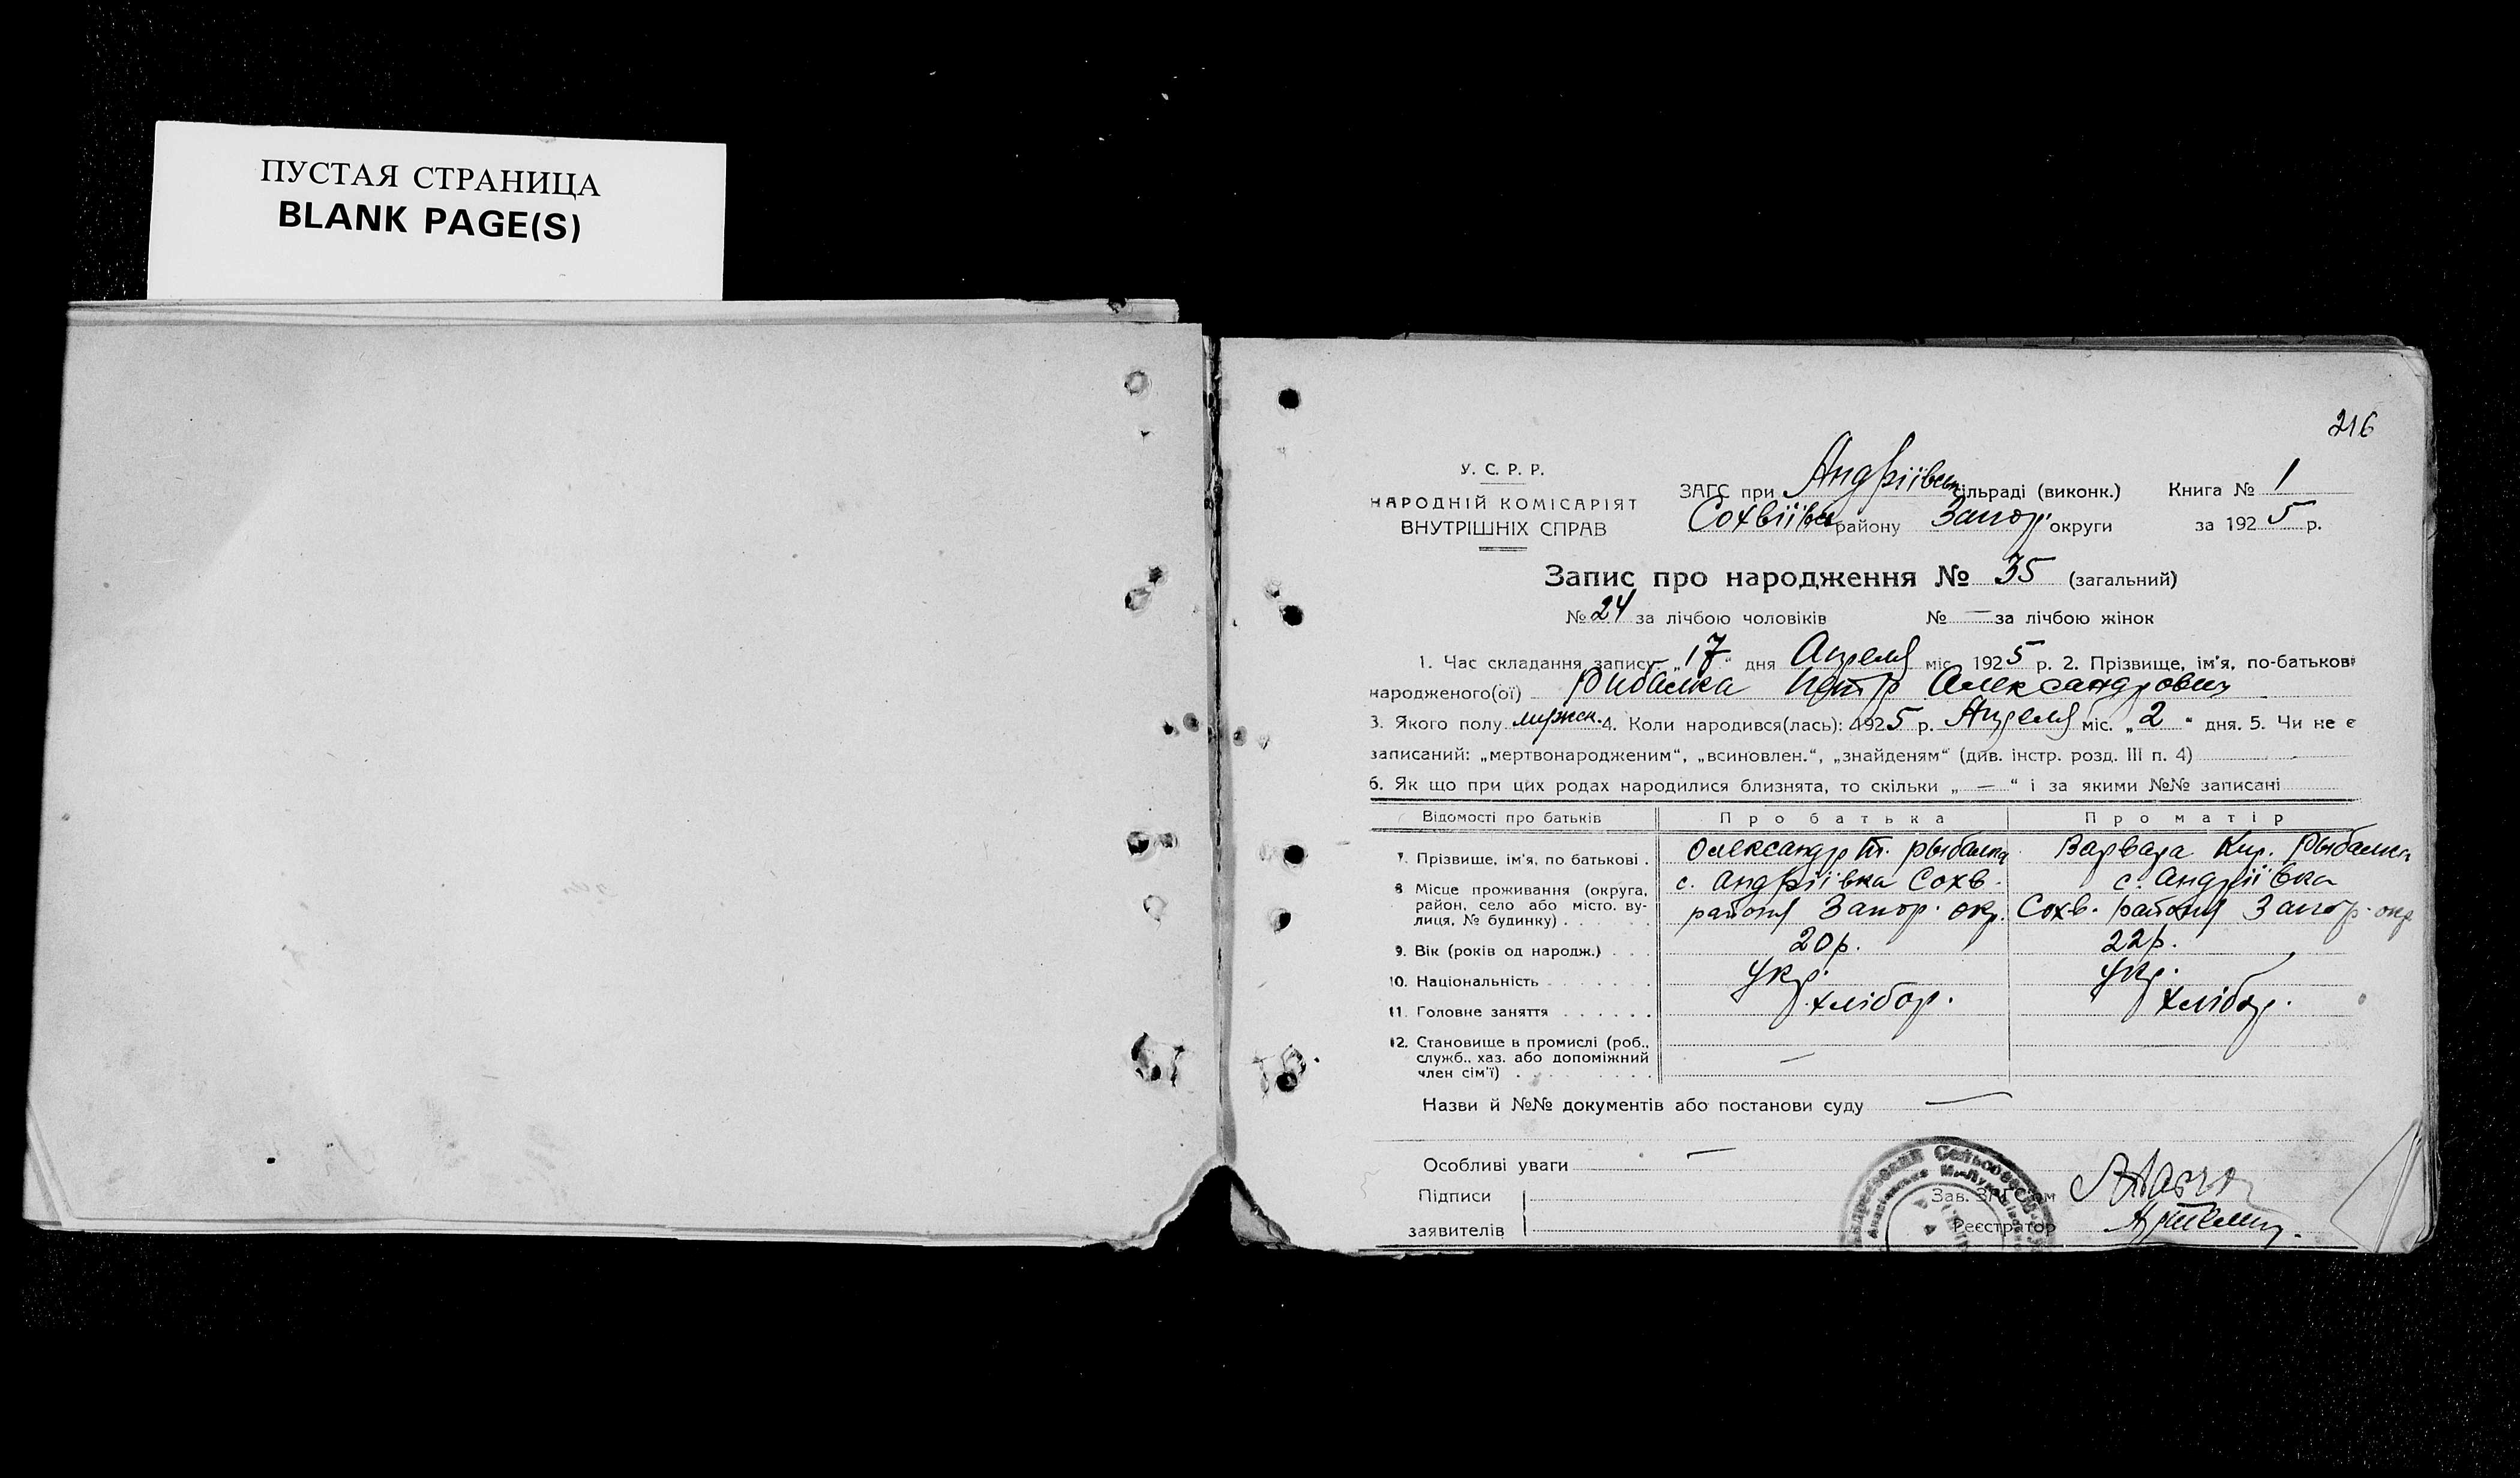 ПУСТАЯ СТРАНИЦА
BLANK PAGE(S)
216
У. С. Р. Р.
НАРОДНІЙ КОМІСАРІЯТ
ВНУТРІШНІХ СПРАВ
ЗАГС при Андріївськ сільраді (виконк.) Книга № 1
Сохвіївск району Запор. округи за 1925 р.
Запис про народження № 35 (загальний)
№ 24 за лічбою чоловіків № — за лічбою жінок
1. Час складання запису: „17“ дня Апреля міс. 1925 р. 2. Прізвище, ім'я, по-батькові
народженого(ої) Рибалка Петр Александрович
3. Якого полу мужск. 4. Коли народився(лась): 1925 р. Апреля міс. „2“ дня. 5. Чи не є
записаний: „мертвонародженим“, „всиновлен.“, „знайденям“ (див. інстр. розд. III п. 4)
6. Як що при цих родах народилися близнята, то скільки „—“ і за якими №№ записані
Відомості про батьків Про батька Про матір
7. Прізвище, ім'я, по батькові . Олександр Т. Рыбалка Варвара Кир. Рыбалка
8 Місце проживання (округа, с. Андріївка Сохв. с. Андріївка
район, село або місто, ву-
лиця, № будинку) . . . района Запор. окр. Сохв. района Запор. окр
9. Вік (років од народж.) . . . 20р. 22р.
10. Національність . . . . . . Укр. Укр.
11. Головне заняття . . . . . . хлібор. хлібор.
12. Становище в промислі (роб.,
служб., хаз. або допоміжний —
член сім'ї) . . . . . . . .
Назви й №№ документів або постанови суду —
Особливі уваги —
Підписи Зав. ЗАГС'ом
заявителів Реєстратор